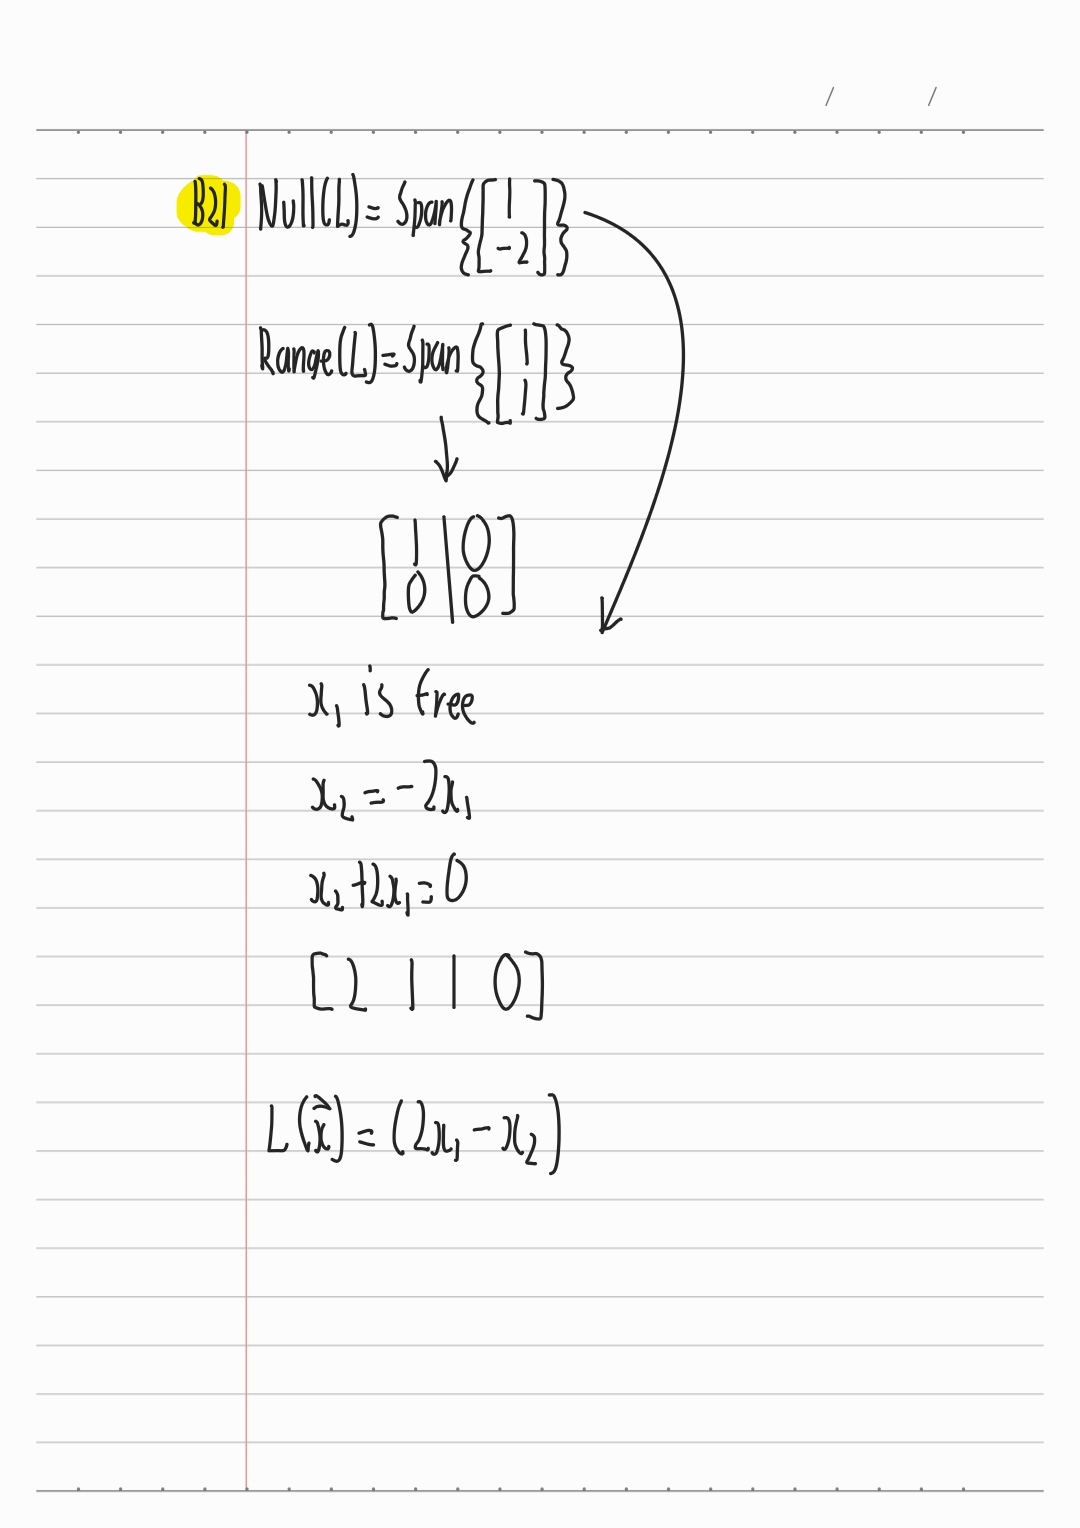 / /
B21 Null(L) = Span{[1 -2]}
Range(L) = Span{[1 1]}
↓
[1 | 0
0 | 0]
x₁ is free
x₂ = -2x₁
x₂+2x₁ = 0
[2 1 | 0]
L(x⃗) = (2x₁ - x₂)